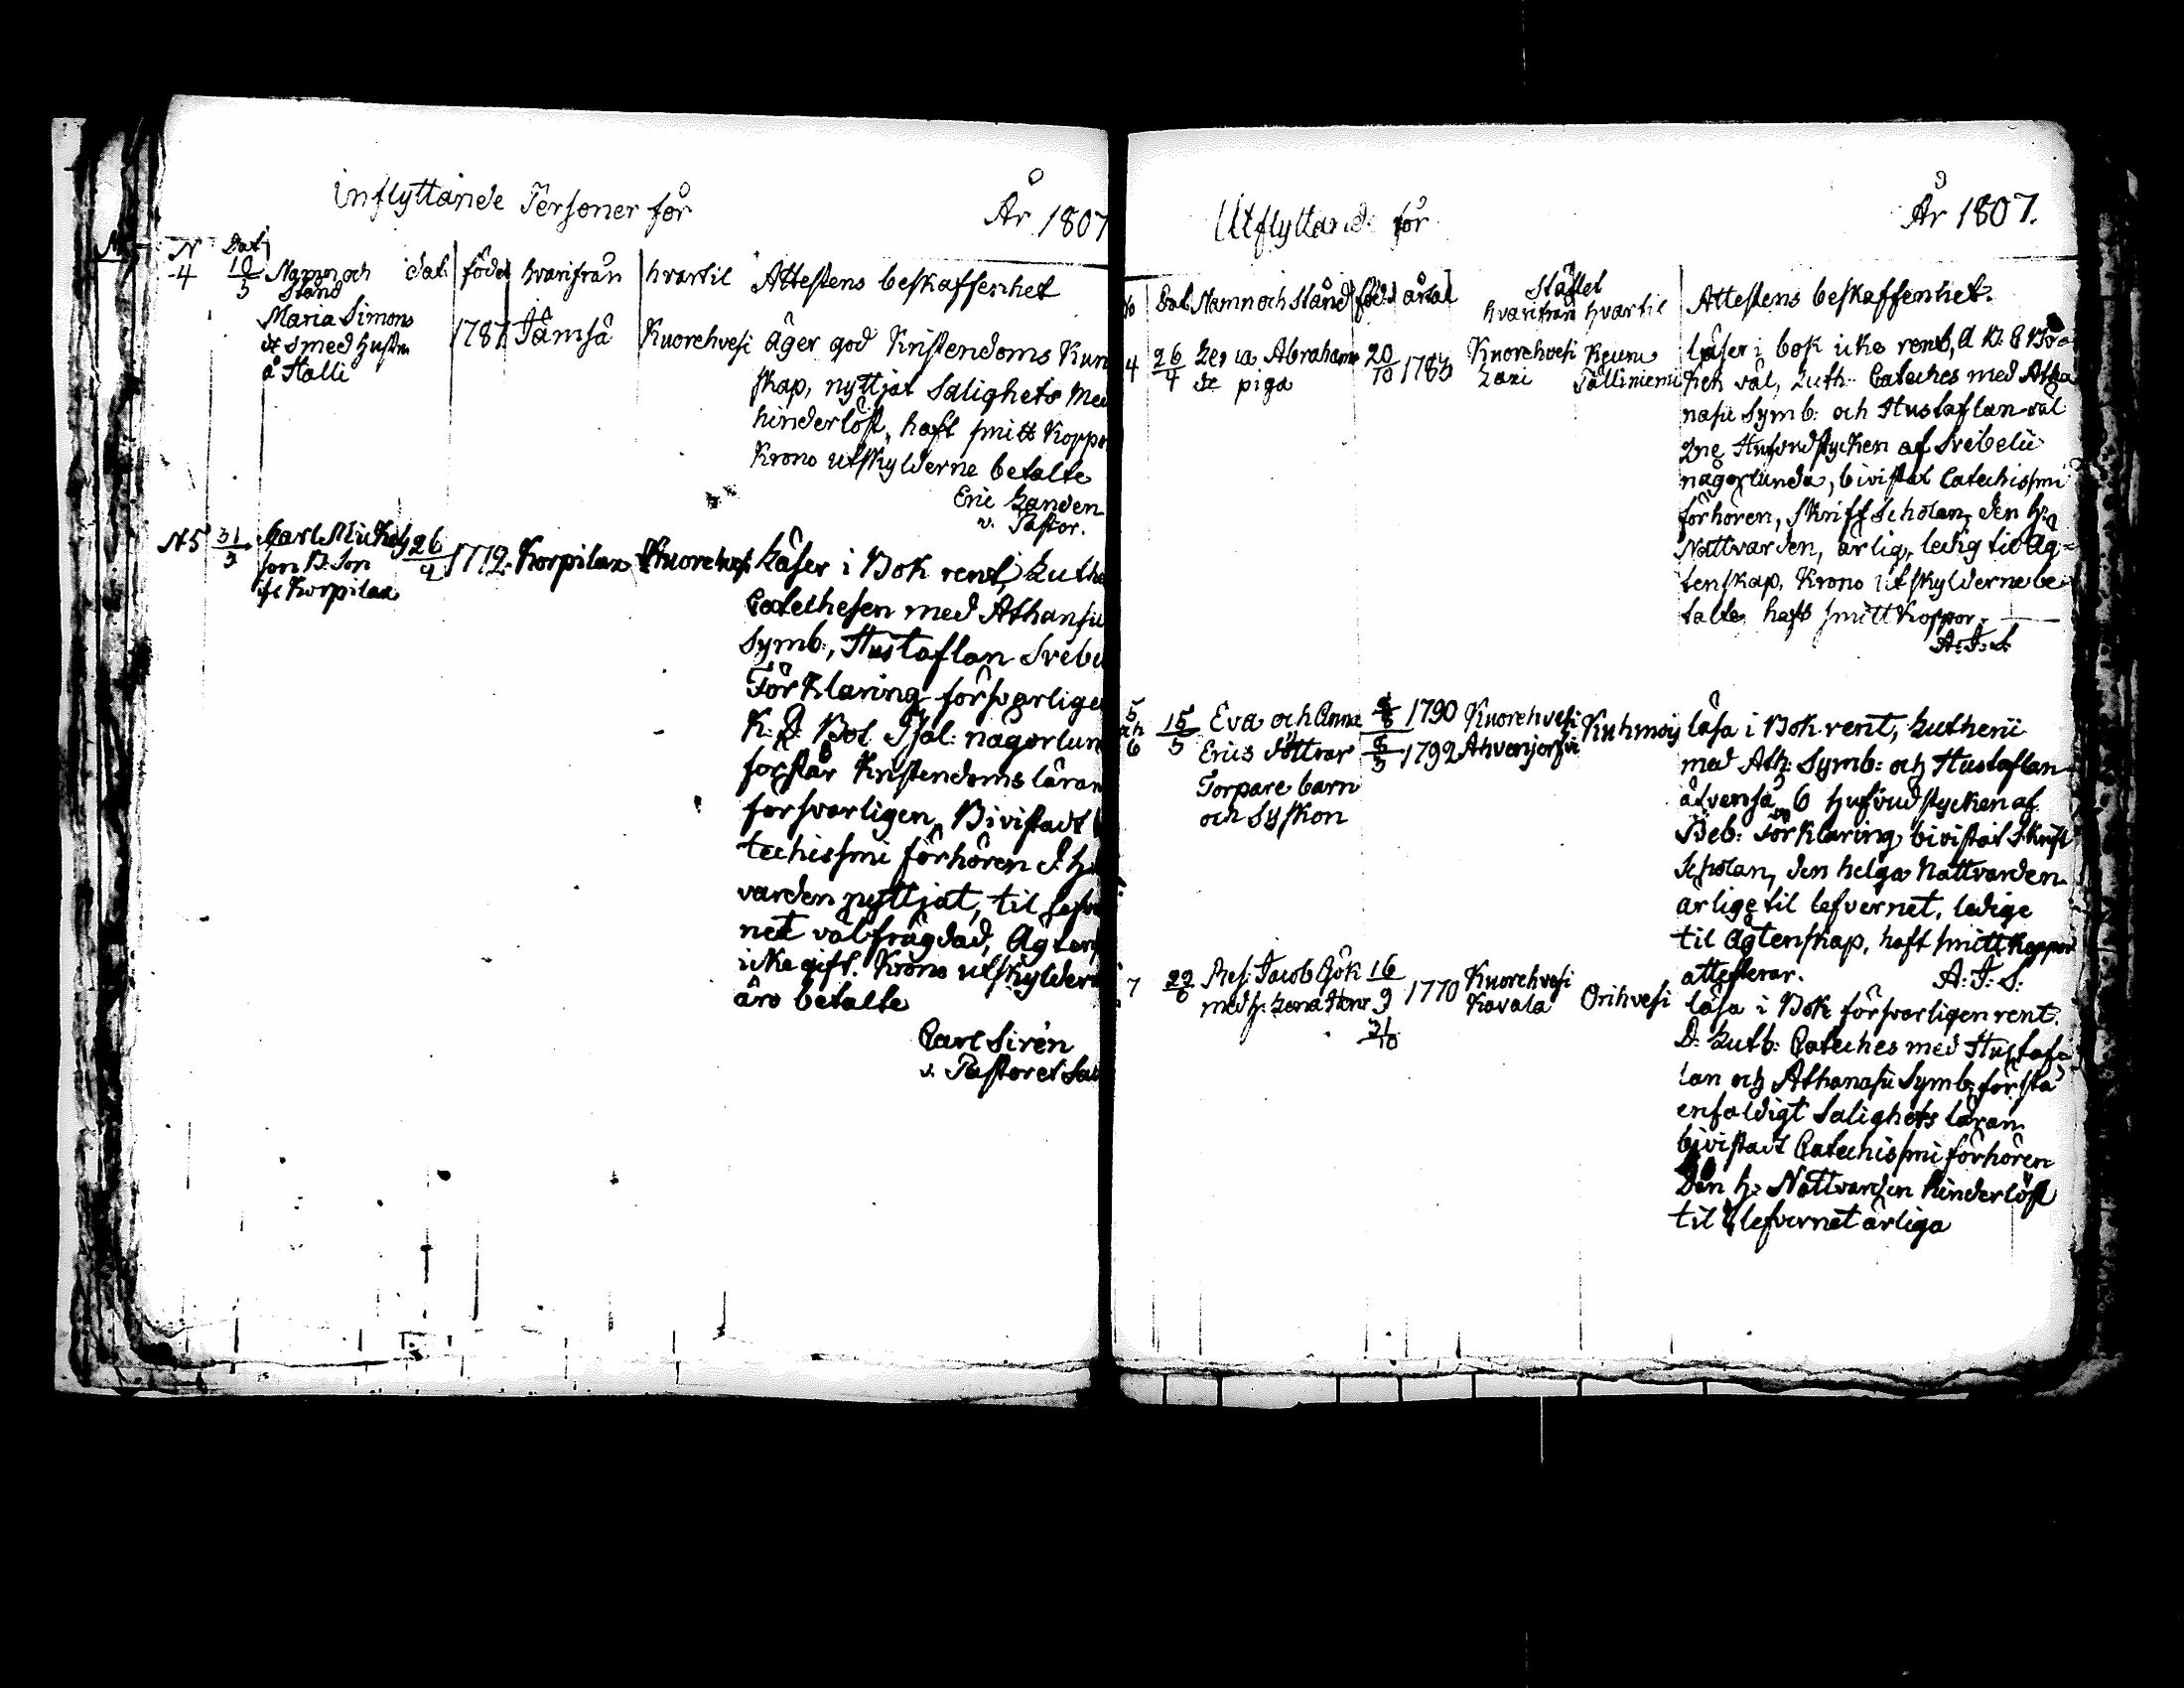 Inflyttande Personer för
År 1807
N
Dat
4
10/3
Namn och
Stånd
dat.
född
hvarifrån
hvartil
Attestens beskaffenhet
Maria Simons
dr smed hustru
å Halli
1787
Jämsä
Kuorehvesi
äger god Kristendoms Kun
skap, nyttjat Salighets Med
hinderlöst, haft smitt Koppor
Krono utskylderne betalte
Eric Zanden
v. Pastor.
N 5
31/3
Carl Mickels
son B. Son
ifr Korpilax
26/4
1772
Korpilax
Kuorehvesi
Läser i Bok rent, Luthe
Catechesen med Athansii
Symb:, Hustaflan Svebi
Förklaring försvarligen
K: D. Bot Psal: någorlun
förstår Kristendoms läran
försvarligen, Bivistadt
techismi förhören d. h.
varden nyttjat, til lefver
net välfrägdad, Ägtens
icke gift. Krono utskyldern
äro betalte
Carl Sirén
v. Pastor et Sac
Utflyttand: för
År 1807.
No
Dat.
Namn och Stånd
född
årtal
Stället
hvarifrån
hvartil
Attestens beskaffenhet.
4
26/4
Abrahams
dr piga
20/10
1783
Kuorehvesi
Lari
Keuru
Tälliniemi
läser i bok icke rent, A B. 8 Bö-
ken väl, Luth: Cateches med Atha
nasii Symb: och Hustaflan väl
2ne Hufvudstycken af Svibelii
någorlunda, bivistat Catechismi
förhören, Skriff Scholan, den H:
Nattvarden, ärlig, ledig til Äg=
tenskap, Krono Utskylderne be
talte, haft smitt Koppor.
A: J: S.
5
och
6
15/5
Eva och Anna
Erics döttrar
Torpare barn
och Syskon
1790
1792
Kuorehvesi
Ahvenjerfvi
Kuhmois
läsa i Bok rent, Lutherii
med Ath: Symb: och Hustaflan
äfvenså 6 hufvudstycken af
Sveb: Förklaring bivistat Skrift
Scholan, den helga Nattvarden
ärlige til lefvernet, ledige
til Ägtenskap, haft smitt Koppor
attesterar.
A: J: S.
7
22/6
Res: Jacob Gök
med h: Lena Henr
16/9
21/10
1770
Kuorehvesi
Kavala
Orihvesi
läsa i Bok försvarligen rent.
D: Luth: Cateches med Hustaf-
lan och Athanasii Symb: förstå
enfaldigt Salighets läran
bivistadt Catechismi förhören
Den h: Nattvarden hinderlöst
til lefvernet ärliga